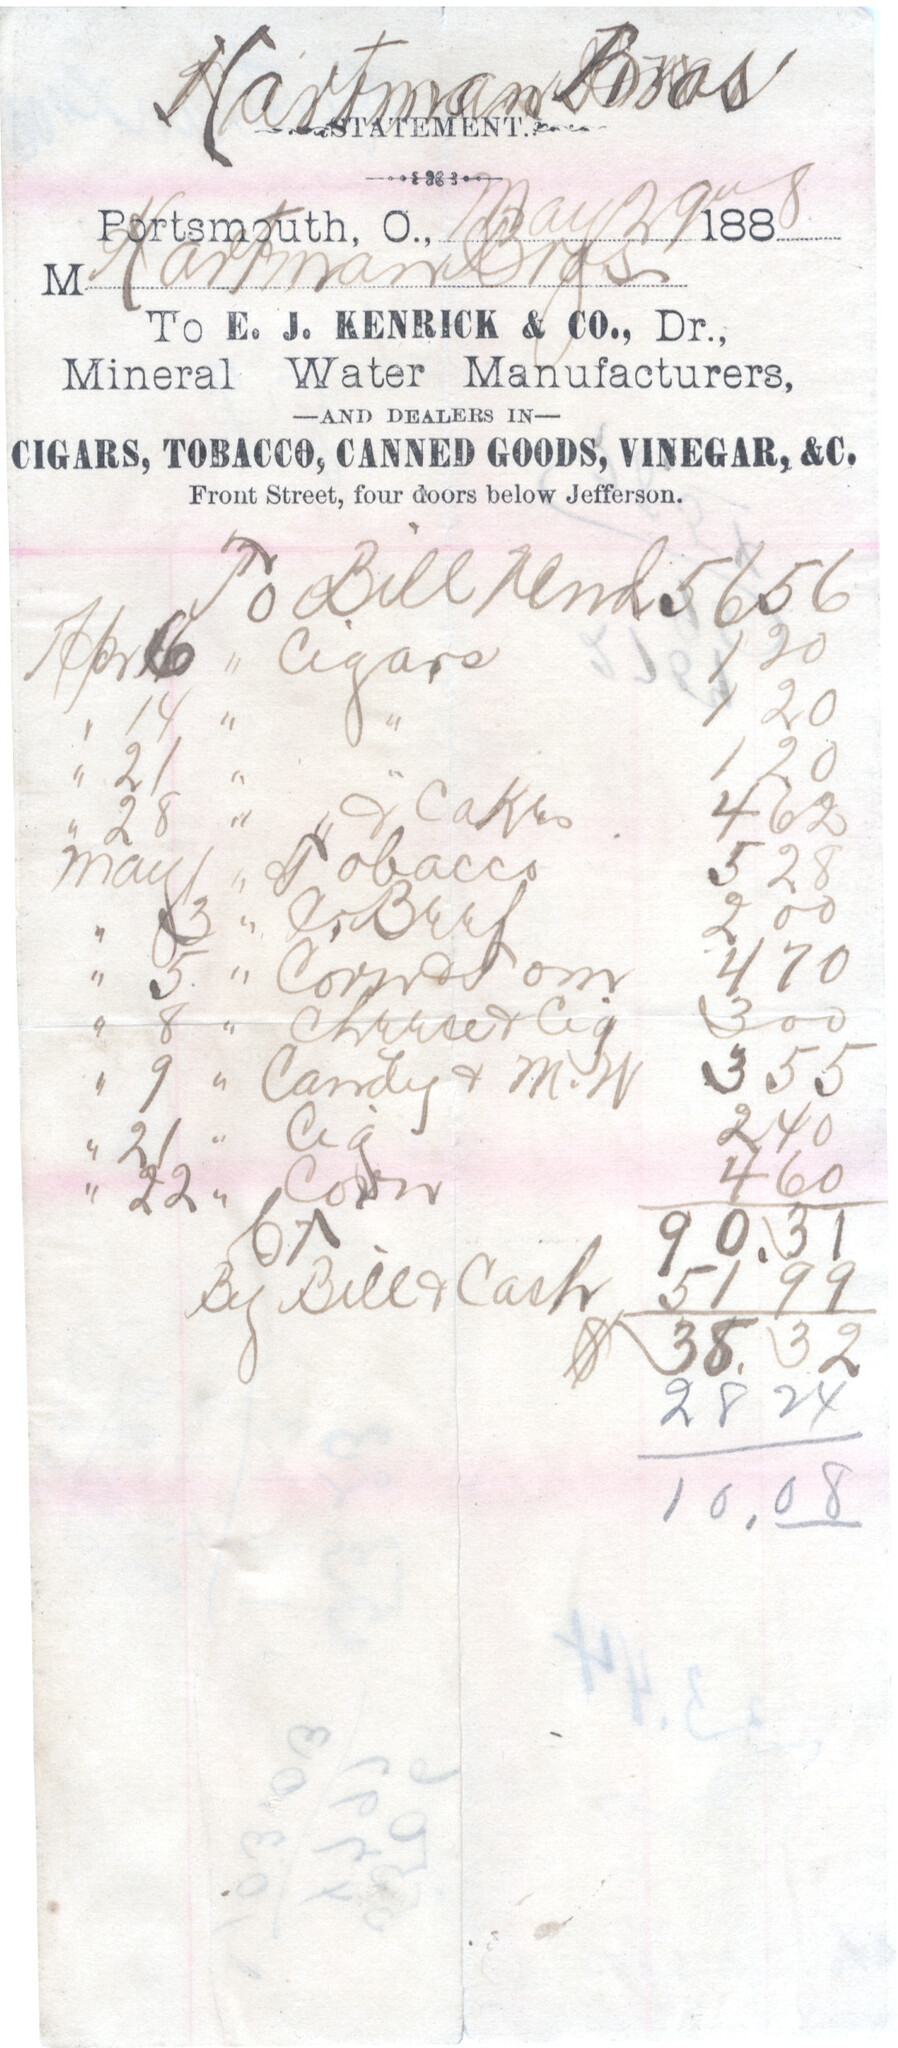 Hartman Bros
STATEMENT.
Portsmouth, O., May 29th 1888
M Hartman Bros
To E. J. KENRICK & CO., Dr.,
Mineral Water Manufacturers,
—AND DEALERS IN—
CIGARS, TOBACCO, CANNED GOODS, VINEGAR, &C.
Front Street, four doors below Jefferson.
To Bill Rend 56 56
Apr 6 " Cigars 1 20
" 14 " " 1 20
" 21 " " 1 20
" 28 " " & Cakes 4 62
May 1 " Tobacco 5 28
" 3 " C. Beef 2 00
" 5 " Corn & Tom 4 70
" 8 " Cheese & Cig 3 00
" 9 " Candy & M. W 3 55
" 21 " Cig 2 40
" 22 " Corn 4 60
Cr 90.31
By Bill & Cash 51 99
$ 38.32
28 24
10.08